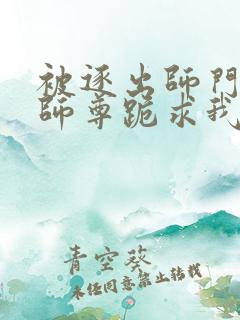 被逐出師門
師尊跪求我
青空葵
未經同意禁止轉載